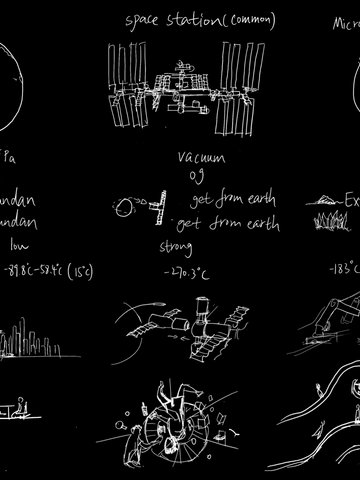 space station(common)
Micro
Pa
vacuum
0g
ndan
get from earth
Ex
ndan
get from earth
low
strong
-89.8°c-58.4°c (15°c)
-270.3°C
-183°